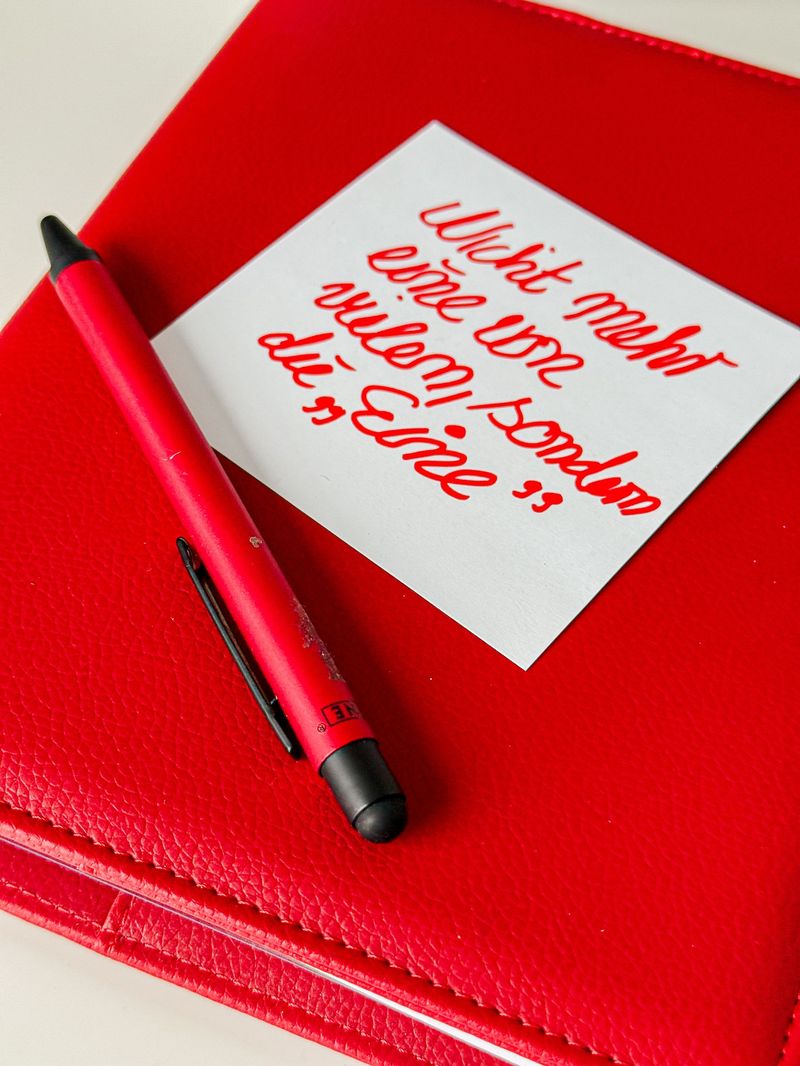 Nicht mehr
eine von
vielen, sondern
die
"Eine"
NE